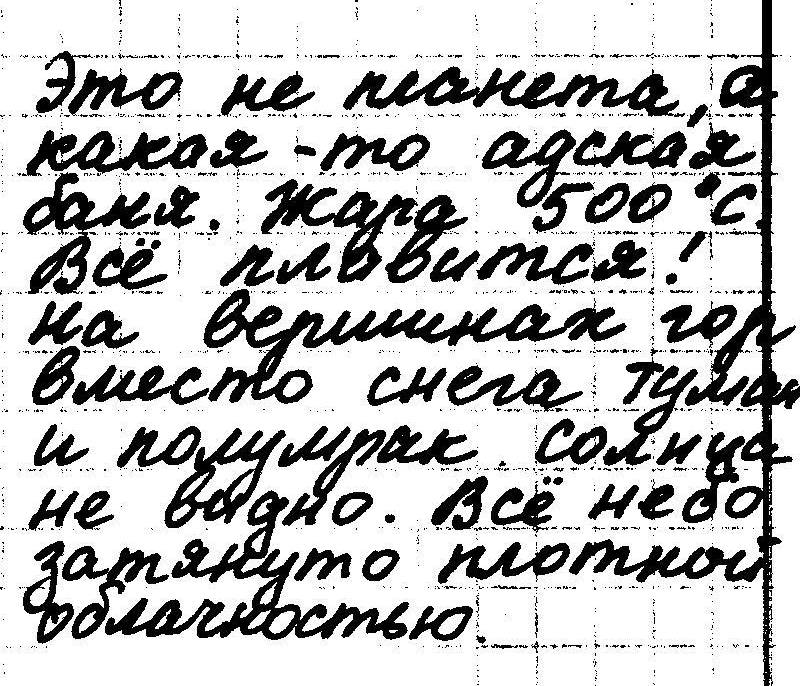 Это не планета, а
какая-то адская
баня. Жара 500°С.
Всё плавится!
На вершинах гор
вместо снега туман
и полумрак. Солнца
не видно. Всё небо
затянуто плотной
облачностью.